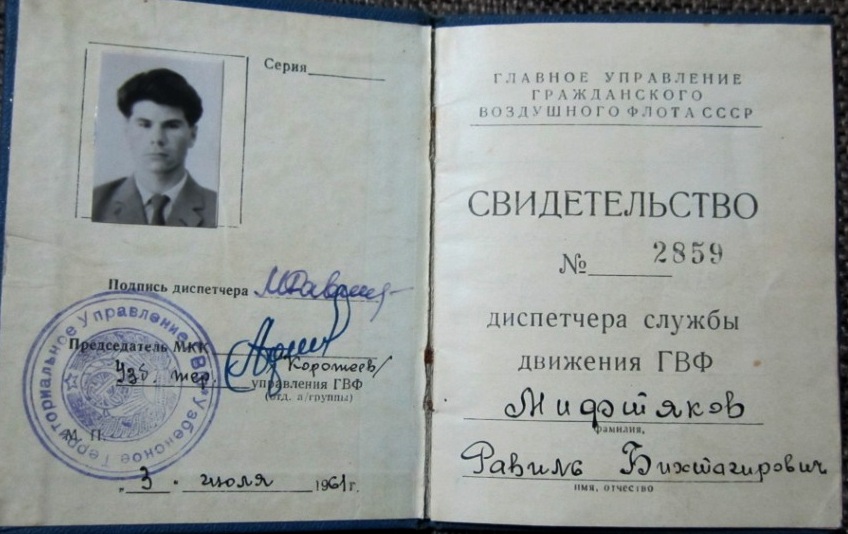 Серия
Подпись диспетчера
Председатель МКК
/Коротеев/
Узб. тер. управления ГВФ
(отд. а/группы)
М. П.
Узбекское Территориальное Управление ГВФ
„3“ июля 1961г.
ГЛАВНОЕ УПРАВЛЕНИЕ
ГРАЖДАНСКОГО
ВОЗДУШНОГО ФЛОТА СССР
СВИДЕТЕЛЬСТВО
№ 2859
диспетчера службы
движения ГВФ
Мифтяков
фамилия,
Равиль Бихтагирович
имя, отчество